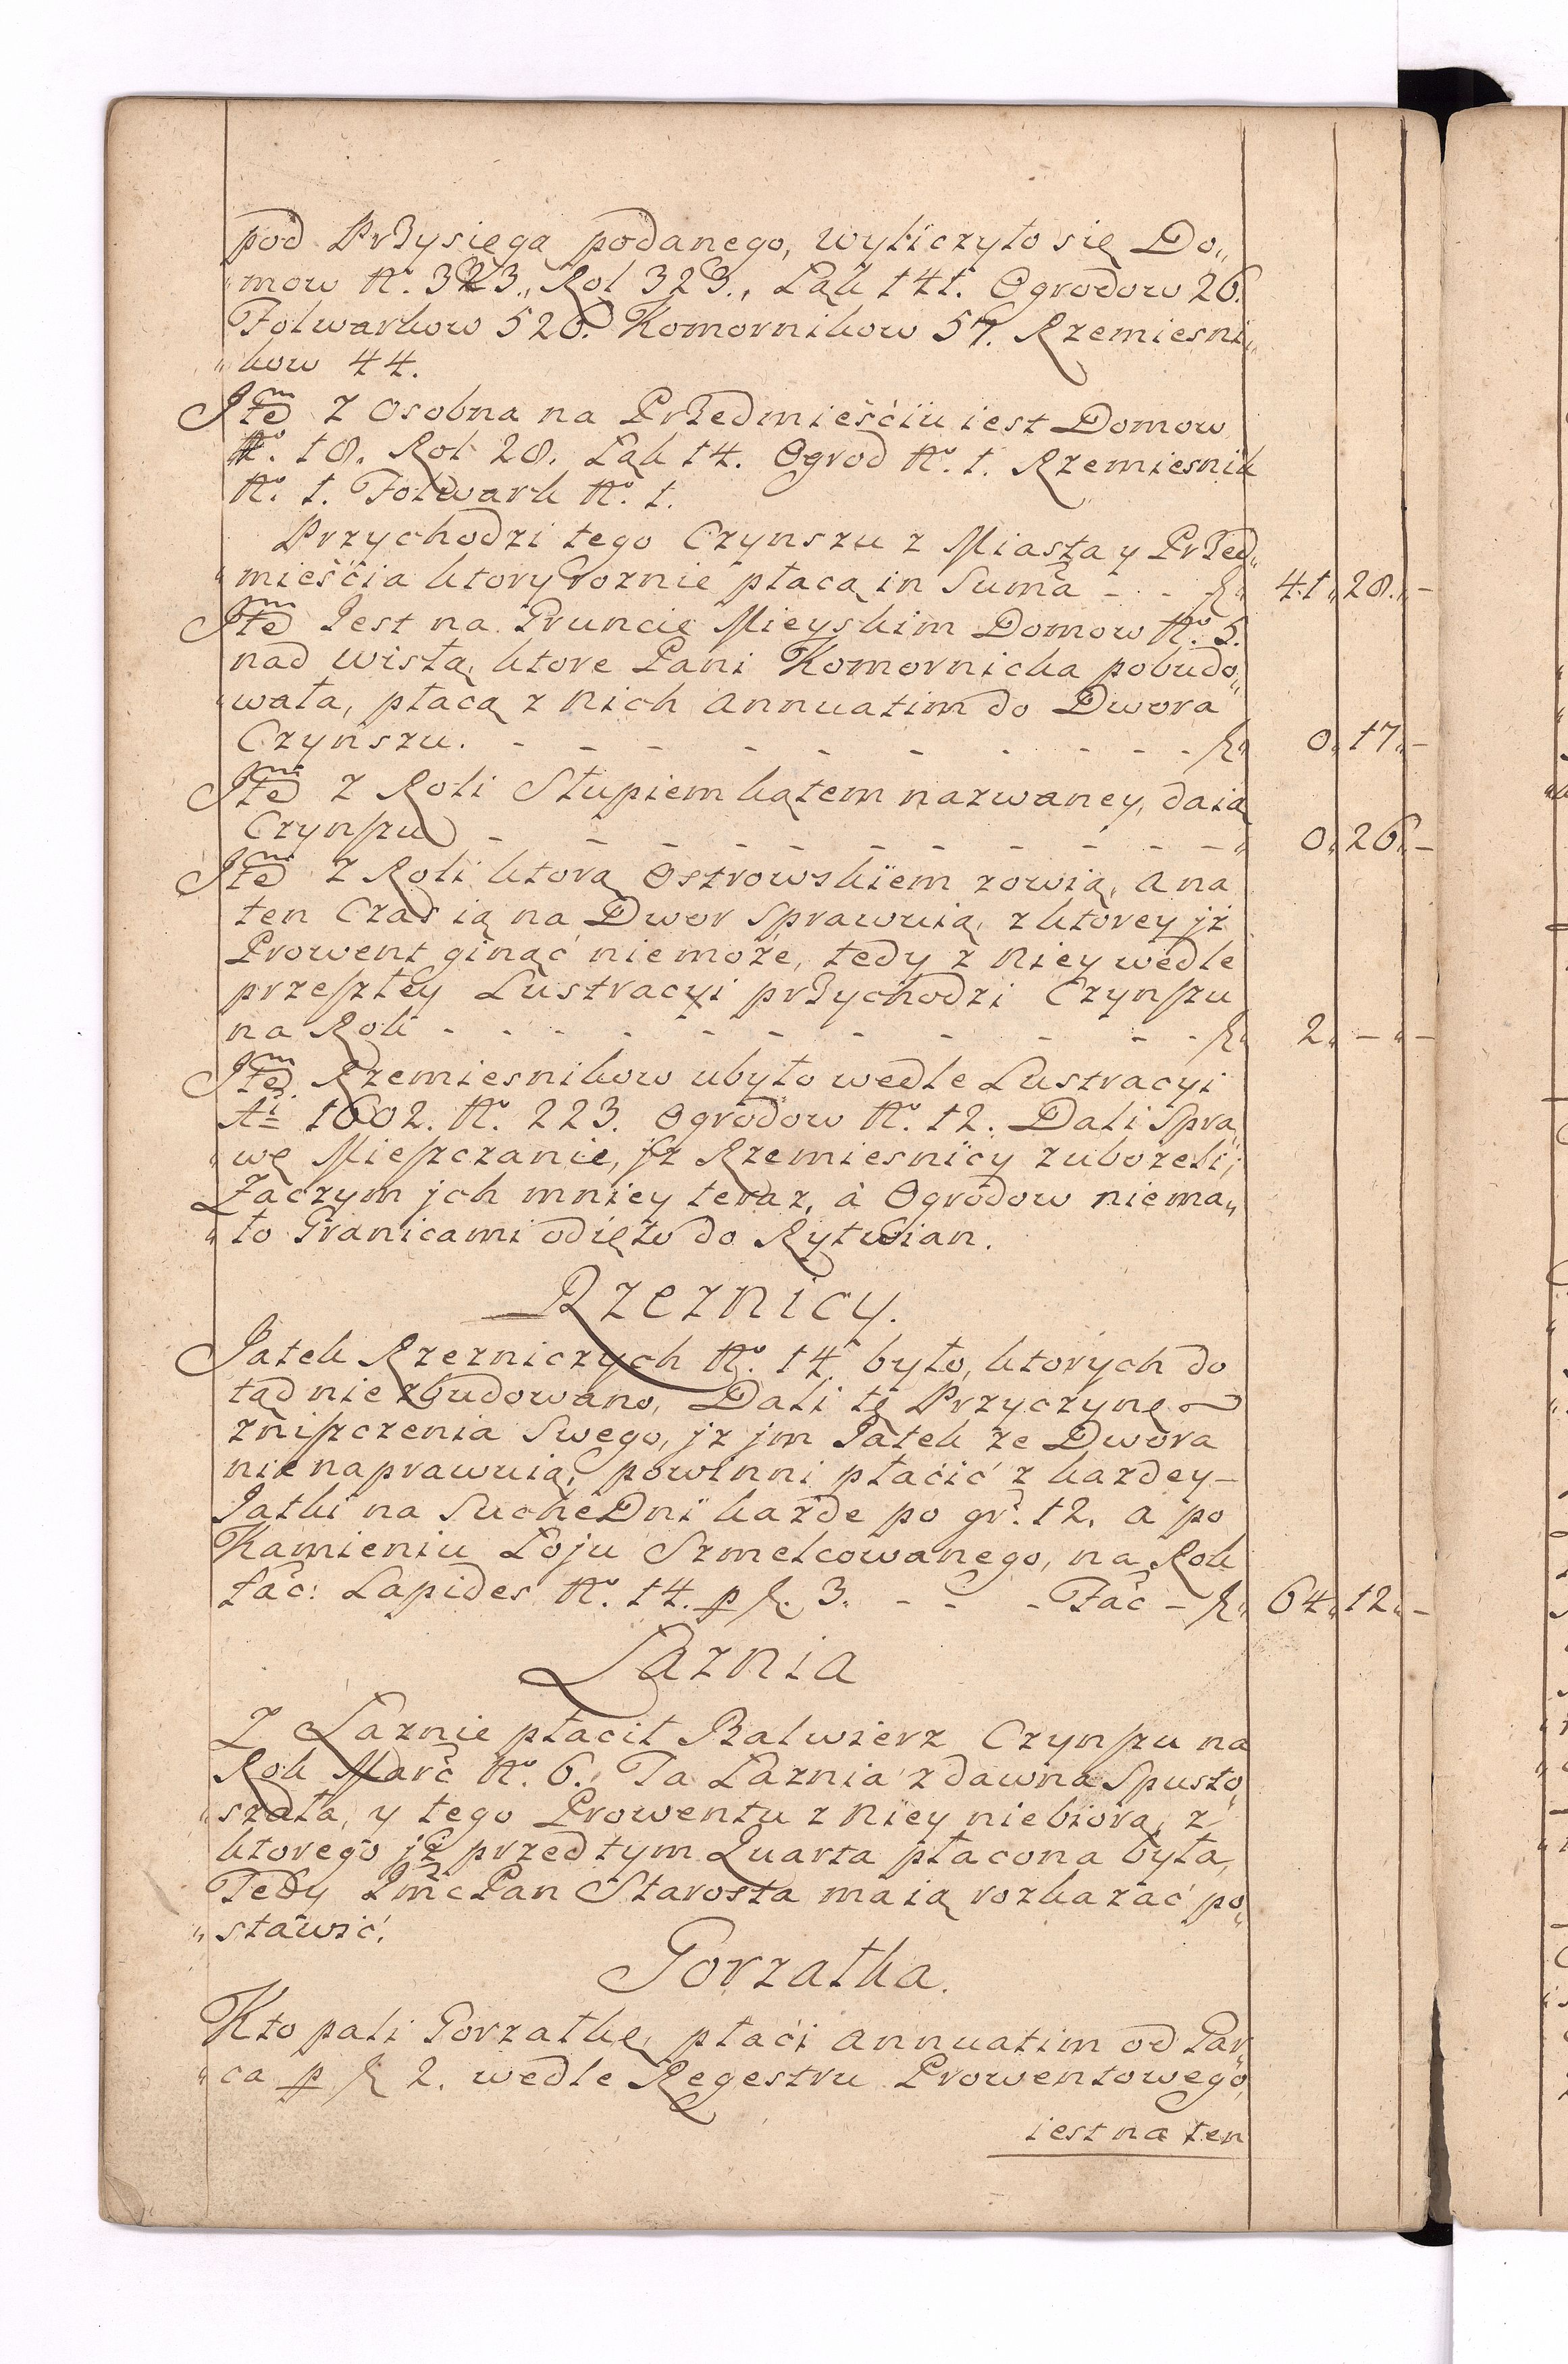 pod Przysięgą podanego, wyliczyło się Do„
„mow No. 323., Rol 323., Łąk 141. Ogrodow 26.
Folwarkow 526. Komornikow 57. Rzemiesni„
„kow 44.
Jtem z osobna na Przedmieśćiu iest Domow
No. 18. Rol 28. Łąk 14. Ogrod No. 1. Rzemiesnik
No. 1. Folwark No. 1.
Przychodzi tego Czynszu z Miasta y Przed„
„mieśćia ktory roznie płacą in Suma - - - f„ 41„ 28„ -
Jtem Jest na Gruncie Mieyskim Domow No. 5.
nad wisłą, ktore Pani Komornicka pobudo„
„wała, płacą z nich annuatim do Dwora
Czynszu. - - - - - - - - - f„ 0„ 17„ -
Jtem z Roli Słupiem kątem nazwaney, daią
Czynszu - - - - - - - - - „ 0„ 26„ -
Jtem z Roli ktorą Ostrowskiem zowią, a na
ten Czas ią na Dwor sprawuią, z ktorey jż
Prowent ginąć niemoże, tedy z niey wedle
przeszłey Lustracyi przychodzi Czynszu
na Rok - - - - - - - - - f„ 2„ - „ -
Jtem Rzemiesnikow ubyło wedle Lustracyi
Ai 1602. No. 223. Ogrodow No. 12. Dali Spra„
„wę Mieszczanie, jż Rzemiesnicy zubożeli,
Zaczym jch mniey teraz, à Ogrodow niema„
„ło Granicami odięto do Rytwian.
Rzeznicy.
Jatek Rzezniczych No. 14 było, ktorych do
tąd nie zbudowano, Dali tę Przyczynę
zniszczenia Swego, jż jm Jatek ze Dwora
nie naprawuią, powinni płaćić z kazdey -
Jatki na Suche Dni każde po gr. 12. a po
Kamieniu Łoju Szmelcowanego, na Rok
fać: Lapides No. 14. p f. 3. - - - Fać - f„ 64„ 12„ -
Łaznia
Z Łaznie płacił Balwierz Czynszu na
Rok Marc No. 6. Ta Łaznia z dawna Spusto„
„szała, y tego Prowentu z niey niebiorą, z
ktorego jż przed tym Quarta płacona była,
Tedy Jmć Pan Starosta maią rozkazać po„
„stawić.
Gorzałka.
Kto pali Gorzałkę, płaći annuatim od Gar„
„ca p f 2. wedle Regestru Prowentowego
iest na ten